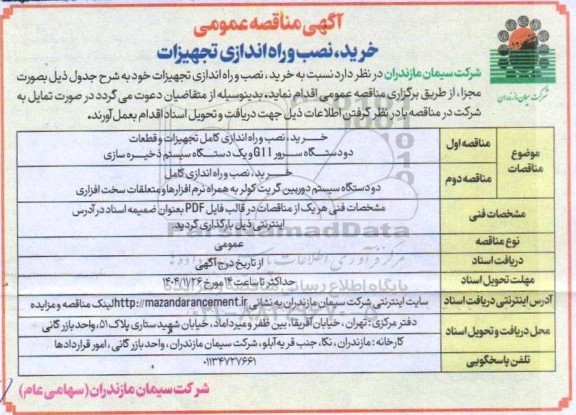 آگهی مناقصه عمومی
خرید، نصب و راه اندازی تجهیزات
شرکت سیمان مازندران
شرکت سیمان مازندران در نظر دارد نسبت به خرید، نصب و راه اندازی تجهیزات خود به شرح جدول ذیل بصورت
مجزا، از طریق برگزاری مناقصه عمومی اقدام نماید. بدینوسیله از متقاضیان دعوت می گردد در صورت تمایل به
شرکت در مناقصه با در نظر گرفتن اطلاعات ذیل جهت دریافت و تحویل اسناد اقدام بعمل آورند.
موضوع مناقصات
مناقصه اول
خرید، نصب و راه اندازی کامل تجهیزات و قطعات
دو دستگاه سرور G11 و یک دستگاه سیستم ذخیره سازی
مناقصه دوم
خرید، نصب و راه اندازی کامل
دو دستگاه سیستم دوربین گریت کولر به همراه نرم افزارها و متعلقات سخت افزاری
مشخصات فنی
مشخصات فنی هر یک از مناقصات در قالب فایل PDF بعنوان ضمیمه اسناد در آدرس
اینترنتی ذیل بارگذاری گردید.
نوع مناقصه
عمومی
دریافت اسناد
از تاریخ درج آگهی
مهلت تحویل اسناد
حداکثر تا ساعت ۱۴ مورخ ۱۴۰۴/۱/۲۶
آدرس اینترنتی دریافت اسناد
سایت اینترنتی شرکت سیمان مازندران به نشانی http://mazandarancement.ir لینک مناقصه و مزایده
محل دریافت و تحویل اسناد
دفتر مرکزی: تهران، خیابان آفریقا، بین ظفر و میرداماد، خیابان شهید ستاری پلاک ۵۱، واحد بازرگانی
کارخانه: مازندران، نکا، جنب قریه آبلو، شرکت سیمان مازندران، واحد بازرگانی، امور قراردادها
تلفن پاسخگویی
۰۱۱۳۴۷۲۷۶۶۱
شرکت سیمان مازندران (سهامی عام)
ParsNamadData